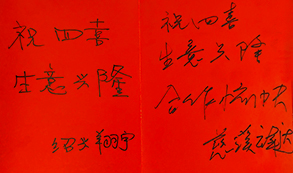 祝四喜
生意兴隆
绍兴翔宇
祝四喜
生意兴隆
合作愉快
慈溪